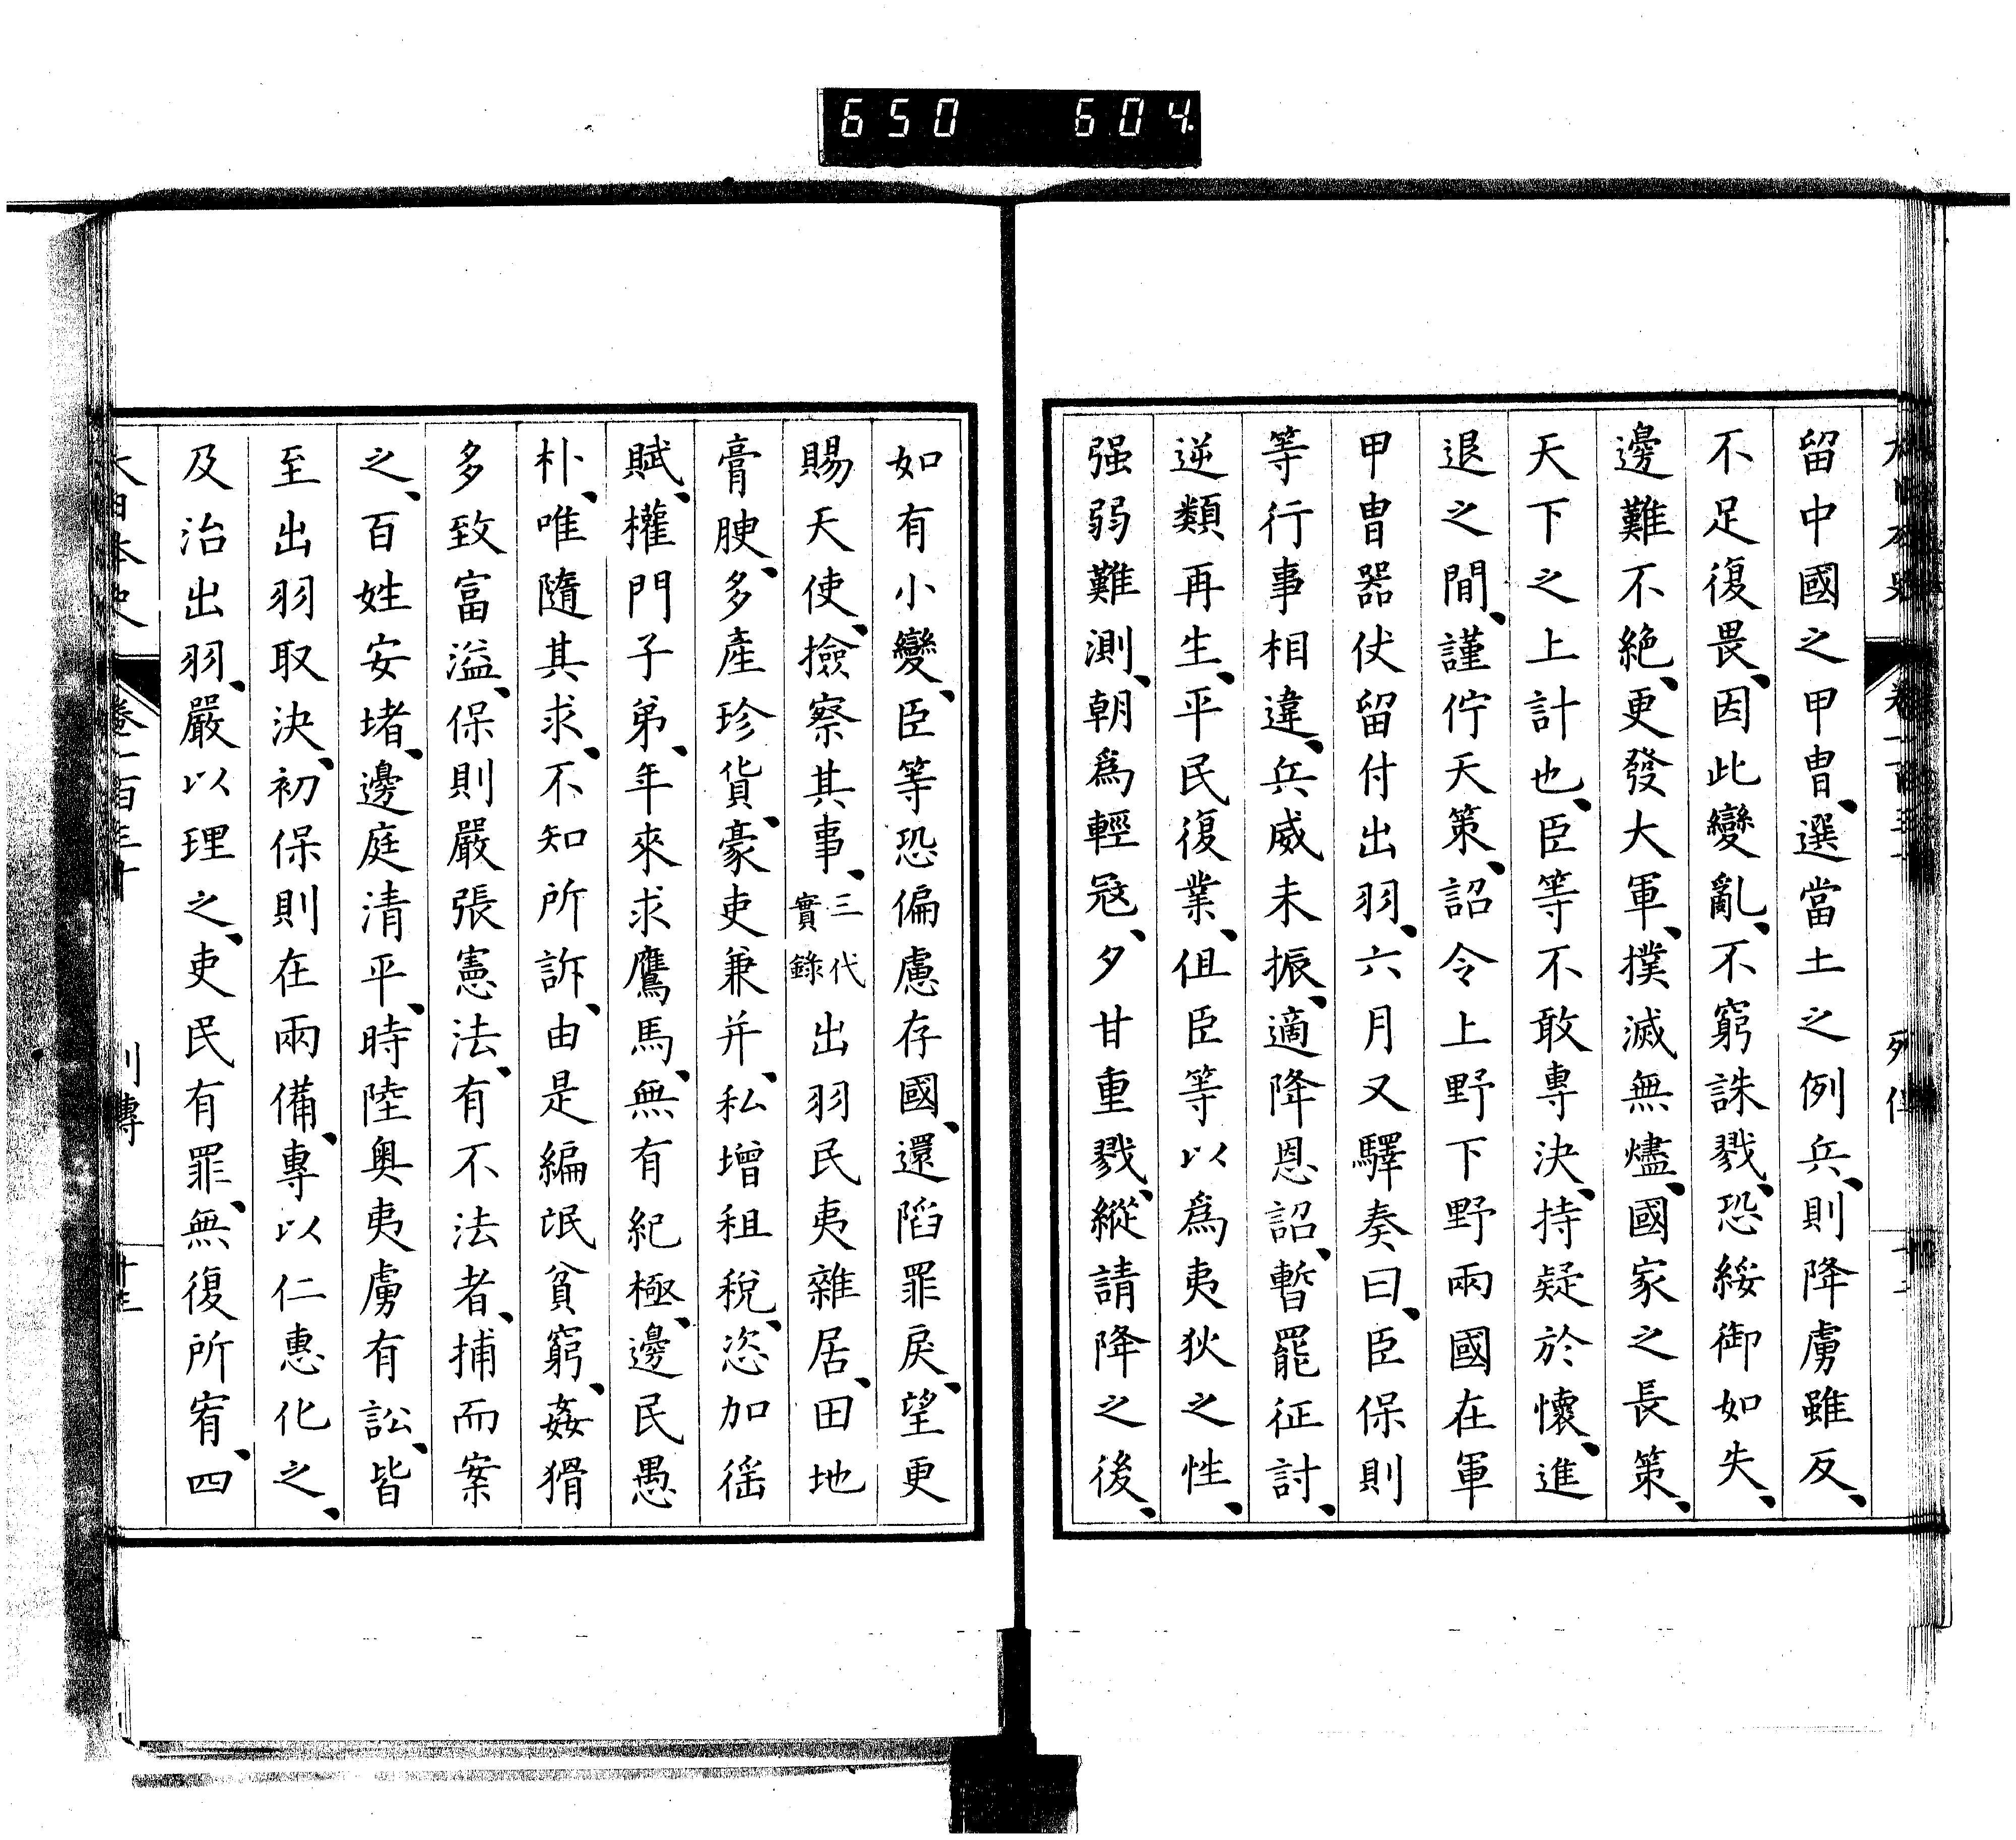 650 604
留中國之甲曹、選當土之例兵、則降虜雖反、
不足復畏、因此變亂、不窮誅戮、恐綏御如失、
邊難不絕、更發大軍、撲滅無燼、國家之長策、
天下之上計也、臣等不敢專決、持疑於懷、進
退之間、謹佇天策、詔令上野下野兩國在軍
甲曹器仗留付出羽、六月又驛奏曰、臣保則
等行事相違、兵威未振、適降恩詔、暫罷征討、
逆類再生、平民復業、伹臣等以爲夷狄之性、
强弱難測、朝爲輕寇、夕甘重戮、縱請降之後、
如有小變、臣等恐偏慮存國、還陷罪戾、望更
賜天使、撿察其事、三代實錄出羽民夷雜居、田地
膏腴、多產珍貨、豪吏兼并、私增租稅、恣加徭
賦、權門子弟、年來求鷹馬、無有紀極、邊民愚
朴、唯隨其求、不知所訴、由是編氓貧窮、姦猾
多致富溢、保則嚴張憲法、有不法者、捕而案
之、百姓安堵、邊庭清平、時陸奧夷虜有訟、皆
至出羽取決、初保則在兩備、專以仁惠化之、
及治出羽、嚴以理之、吏民有罪、無復所宥、四
大日本史 卷一百五十 列傳 十三